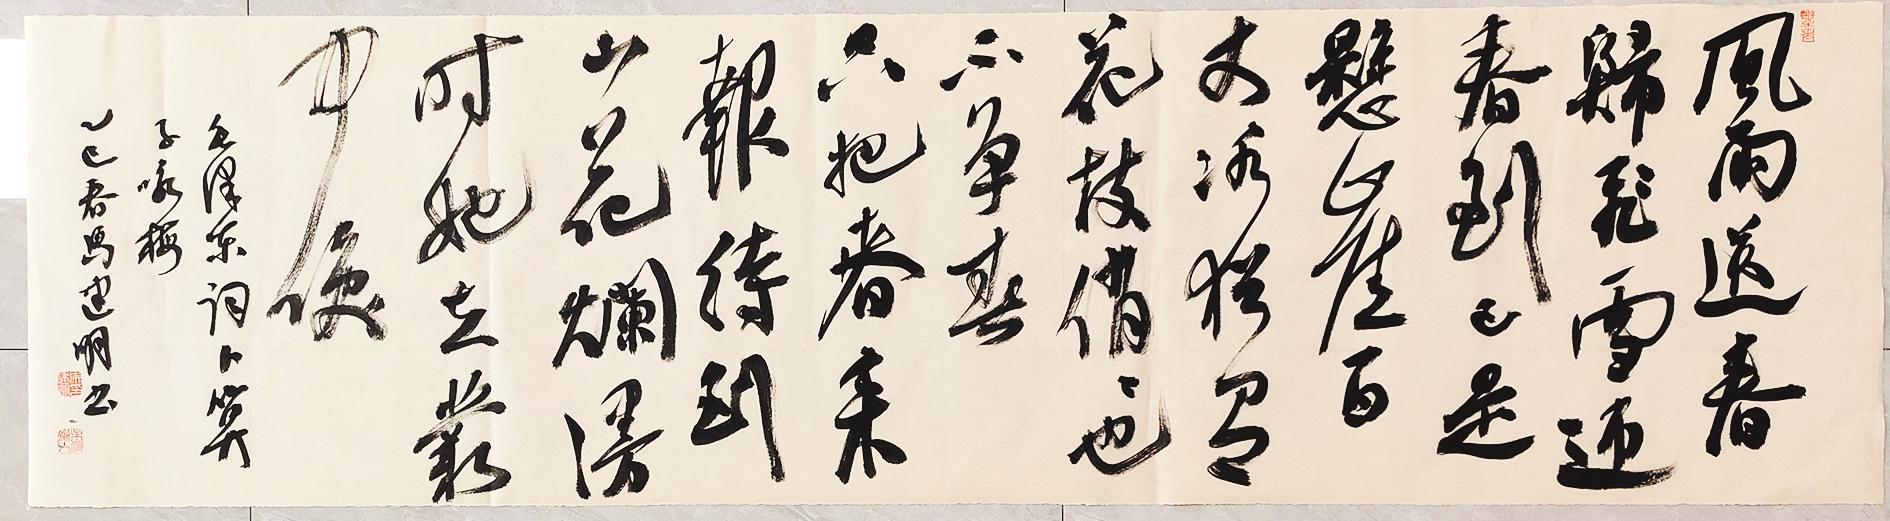 風雨送春
歸飛雪迎
春到已是
懸崖百
丈冰猶有
花枝俏俏也
不争春
只把春来
報待到
山花爛漫
时她在叢
中咲
毛泽东词卜算
子咏梅
乙巳春马建明书